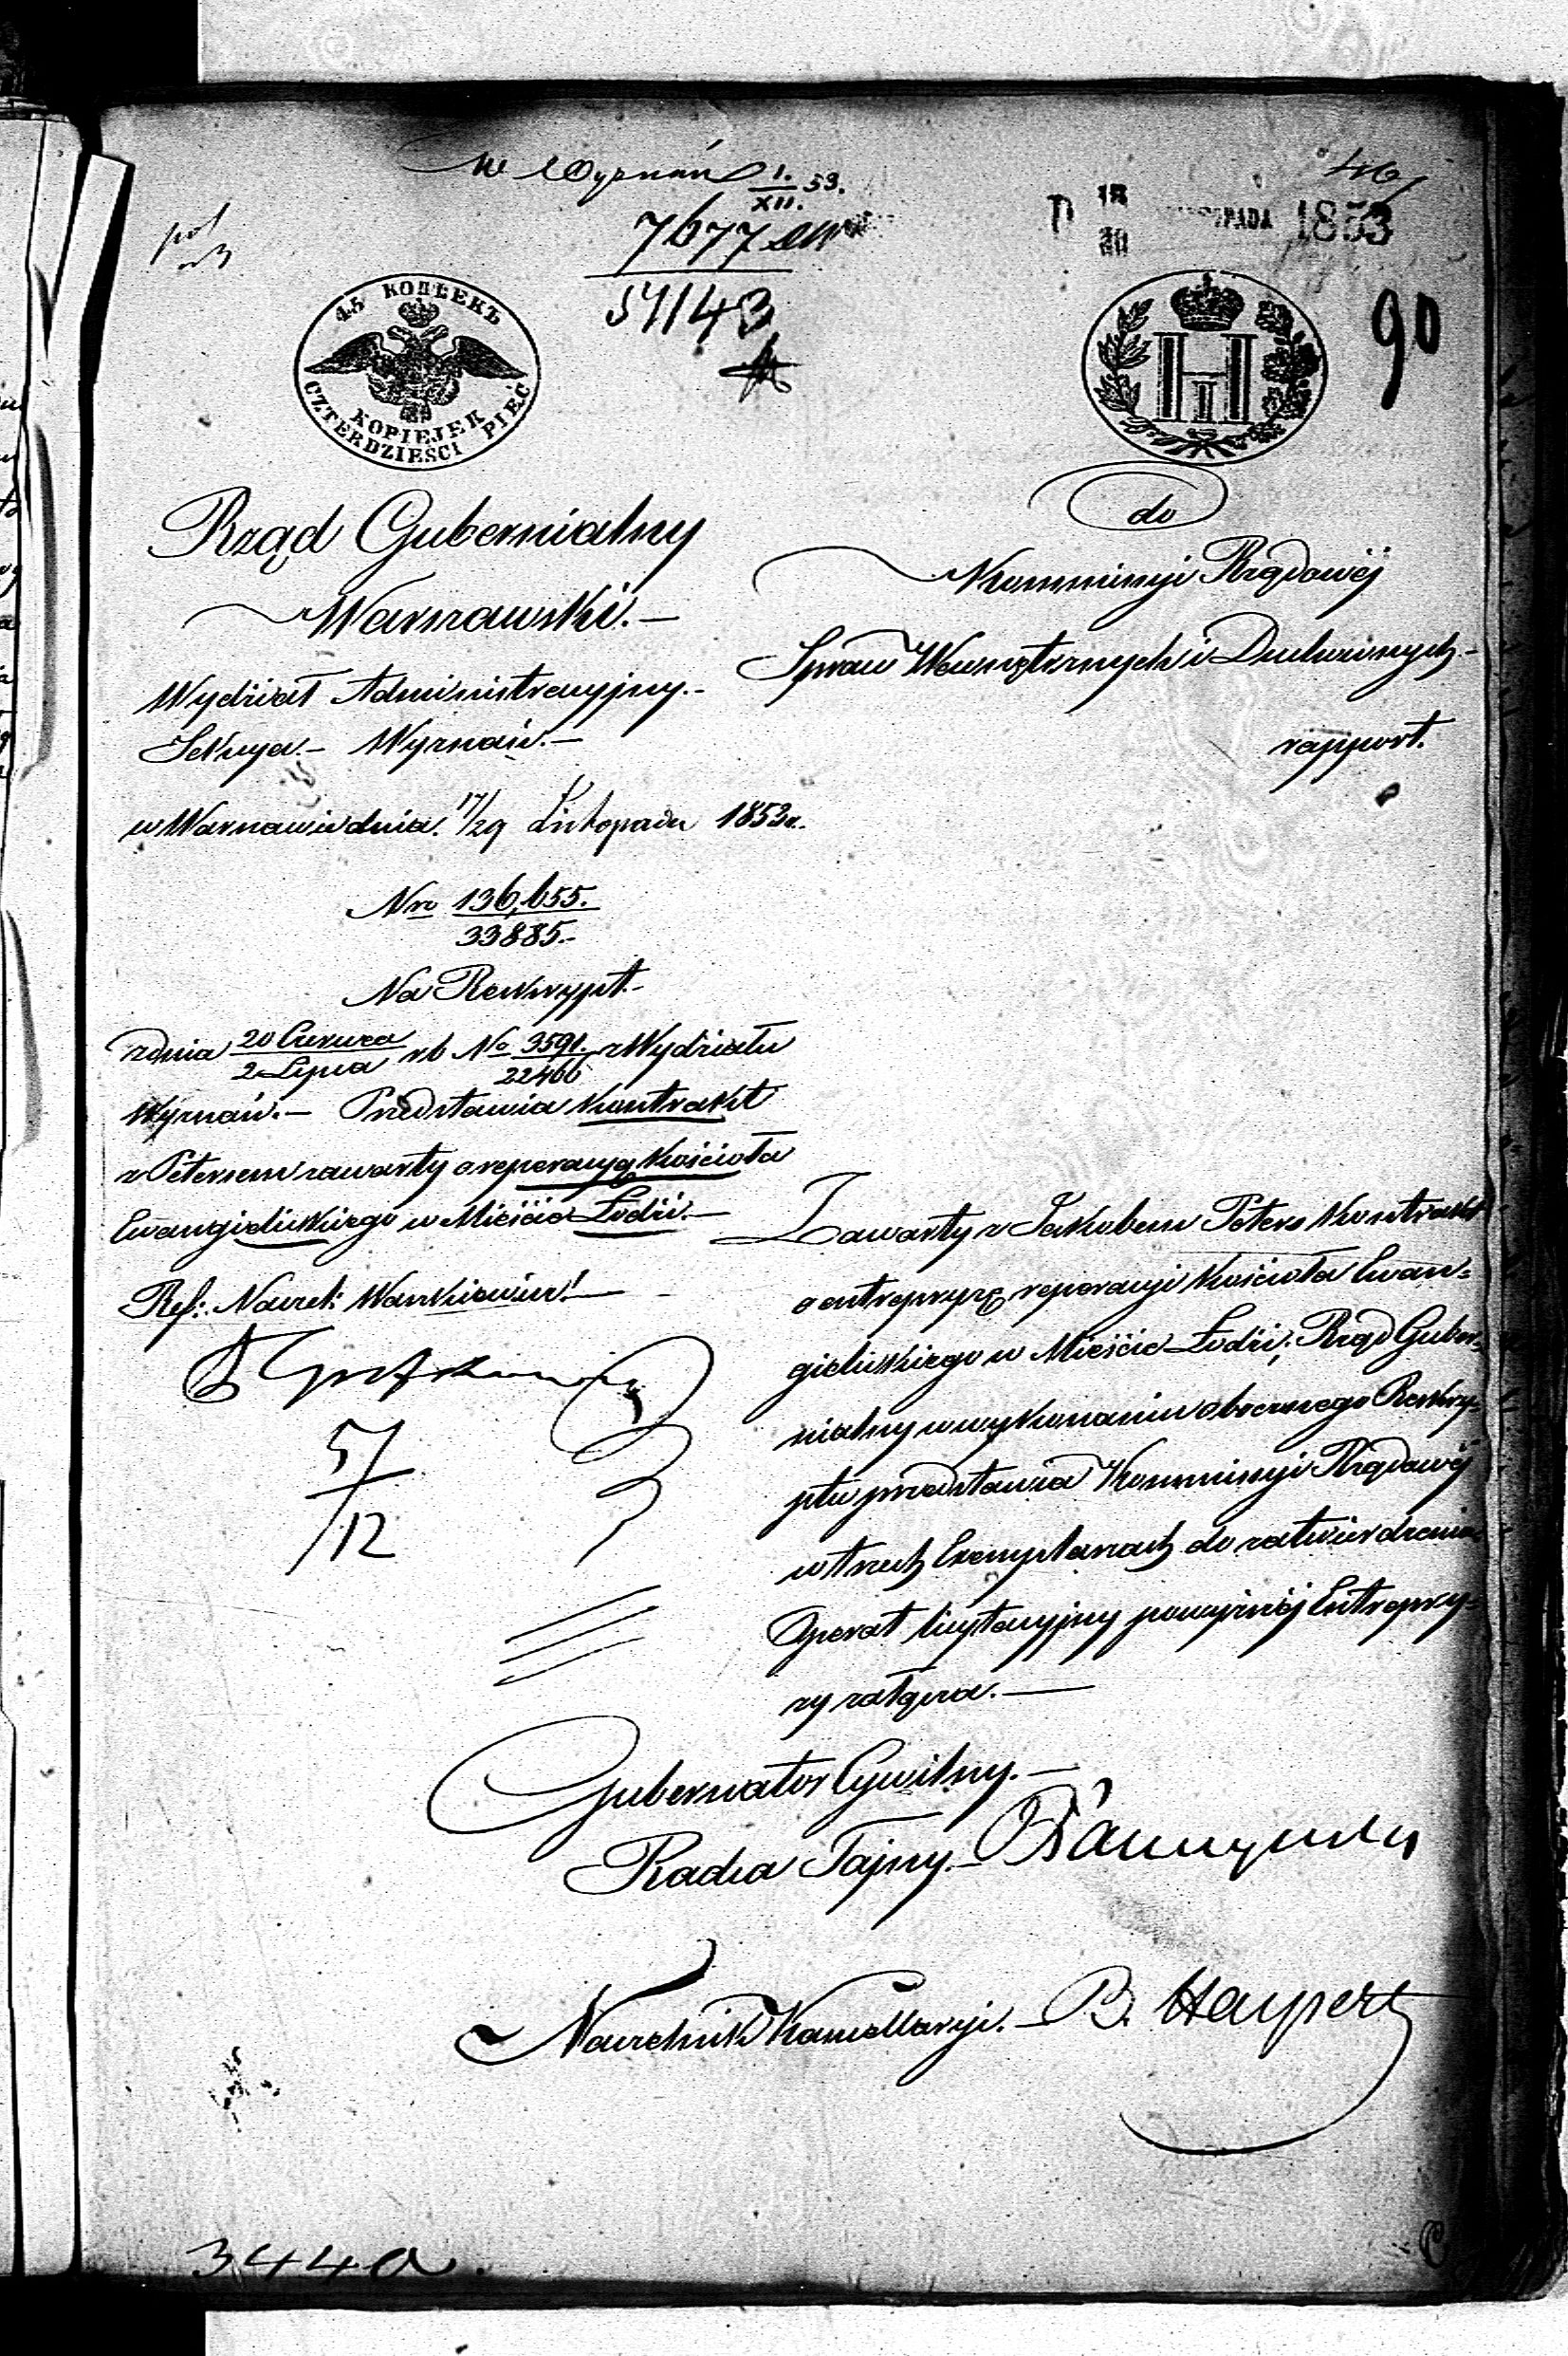 W. Wyznań I./XII. 53.
7677
54143
46
18/30 LISTOPADA 1853
90
45 КОПѢЕКЪ
KOPIEJEK
CZTERDZIEŚCI PIĘĆ
Rząd Gubernialny
Warszawski.—
Wydział Administracyjny.—
Sekcya.— Wyznań.—
w Warszawie dnia 17/29 Listopada 1853 r.
Nro 136,655.
33885.—
Na Reskrypt.—
z dnia 20 Czerwca/2 Lipca r b No 3591./22466 z Wydziału
Wyznań.— Przedstawia Kontrakt
z Petersem zawarty o reperacyą Kościoła
Ewangielickiego w Mieście Łodzi.—
Ref: Naczel:
5/12
do
Kommissyi Rządowéj
Spraw Wewnętrznych i Duchownych—
rapport.
Zawarty z Jakobem Peters Kontrakt
o entrepryzę reperacyi Kościoła Ewan=
gielickiego w Mieście Łodzi; Rząd Guber=
nialny w wykonaniu obocznego Reskry=
ptu przedstawia Kommissyi Rządowéj
w trzech Exemplarzach do zatwierdzenia
Operat licytacyjny powyższéj Entrepry=
zy załącza.—
Gubernator Cywilny.—
Radca Tajny.—
Naczelnik Kancellaryi.— B. Halpert
344a.